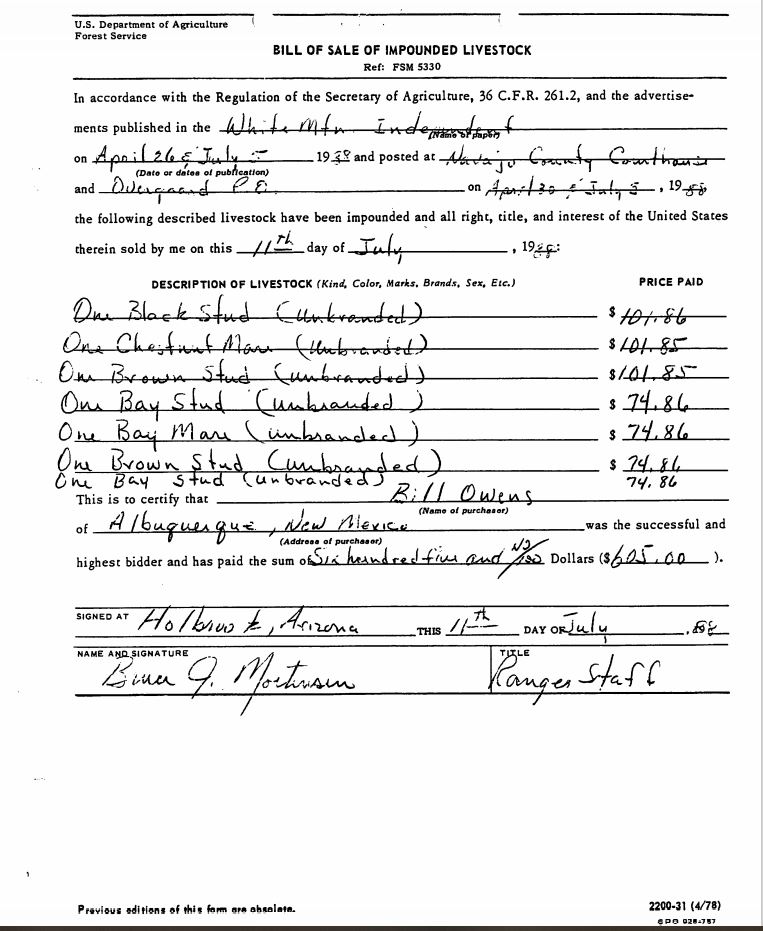 U.S. Department of Agriculture
Forest Service
BILL OF SALE OF IMPOUNDED LIVESTOCK
Ref: FSM 5330
In accordance with the Regulation of the Secretary of Agriculture, 36 C.F.R. 261.2, and the advertise-
ments published in the White Mtn Independent
(Name of paper)
on April 26 & July 5 1988 and posted at Navajo County Courthouse
(Date or dates of publication)
and Overgaard P.O. on April 30 & July 5, 1988
the following described livestock have been impounded and all right, title, and interest of the United States
therein sold by me on this 11th day of July, 1988:
DESCRIPTION OF LIVESTOCK (Kind, Color, Marks, Brands, Sex, Etc.) PRICE PAID
One Black Stud (Unbranded) $ 101.86
One Chestnut Mare (Unbranded) $ 101.85
One Brown Stud (unbranded) $ 101.85
One Bay Stud (unbranded) $ 74.86
One Bay Mare (unbranded) $ 74.86
One Brown Stud (unbranded) $ 74.86
One Bay Stud (unbranded) 74.86
This is to certify that Bill Owens
(Name of purchaser)
of Albuquerque, New Mexico was the successful and
(Address of purchaser)
highest bidder and has paid the sum of Six hundred five and no/100 Dollars ($605.00).
SIGNED AT Holbrook, Arizona THIS 11th DAY OF July, 88
NAME AND SIGNATURE TITLE
J. Mortensen Ranger Staff
Previous editions of this form are obsolete.
2200-31 (4/78)
GPO 028-787